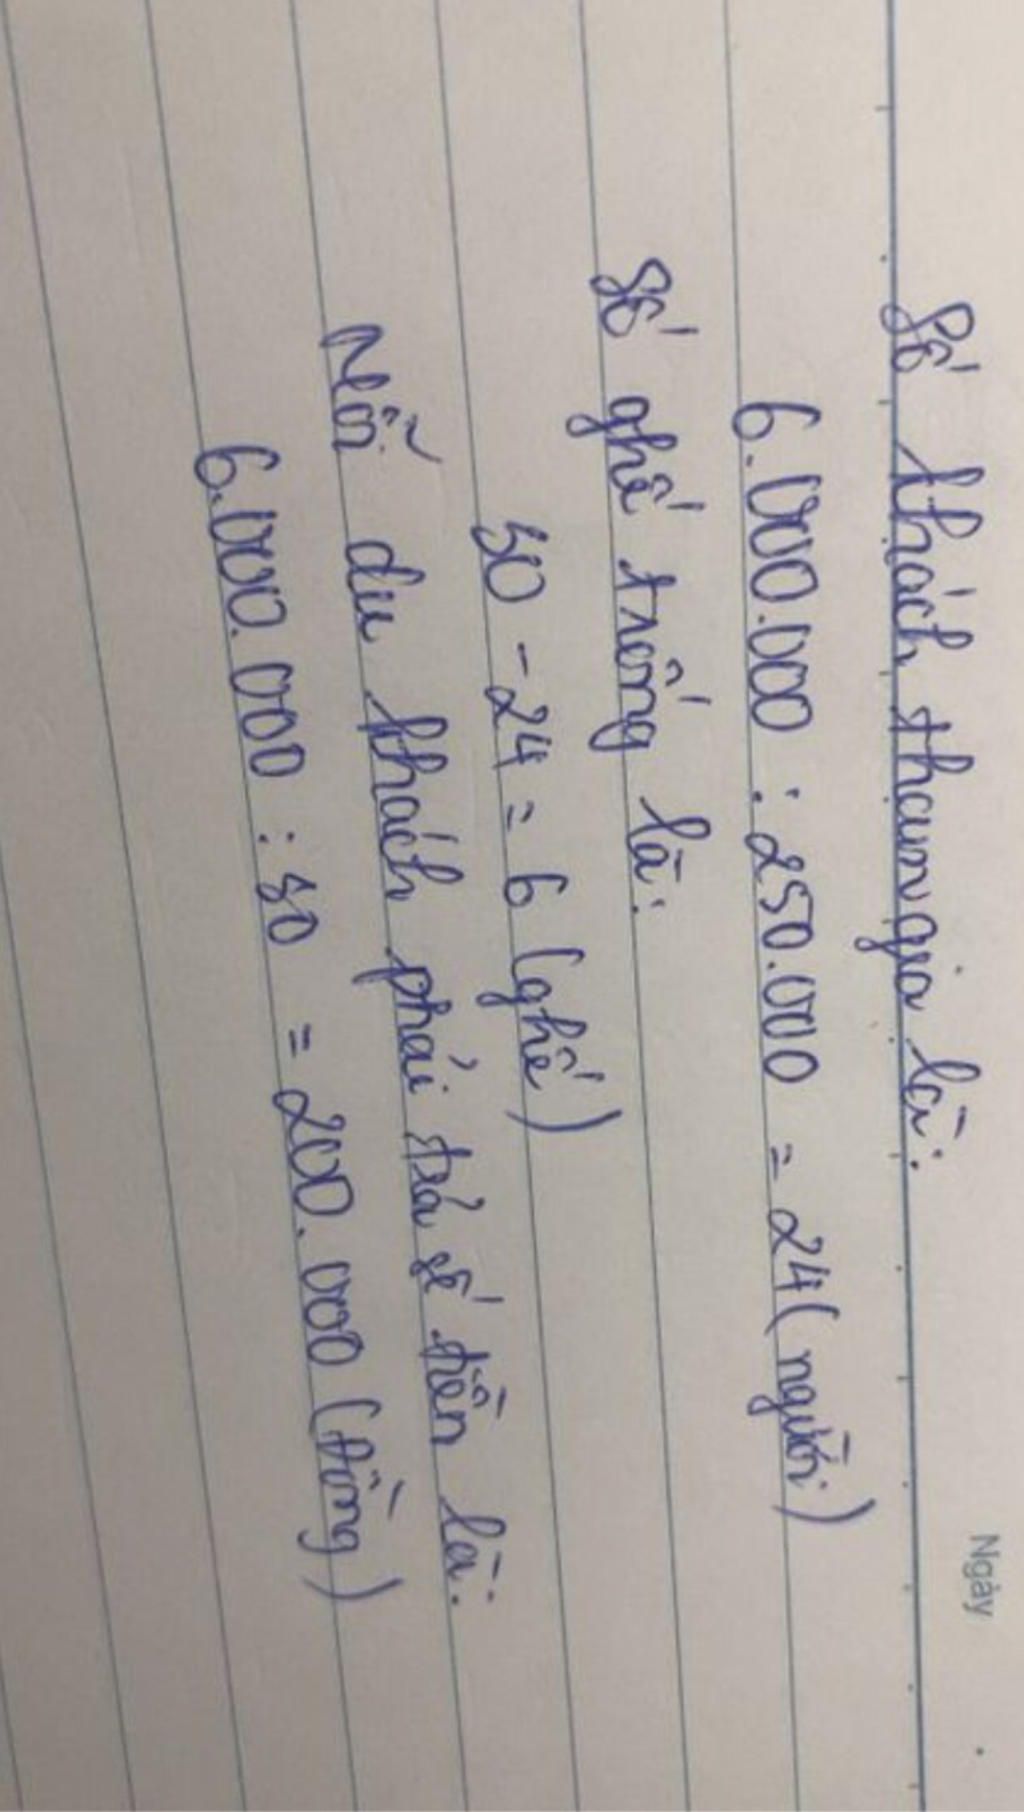 Ngày
Số khách tham gia là:
6.000.000 : 250.000 = 24 (người)
Số ghế trống là:
30 - 24 = 6 (ghế)
Mỗi du khách phải trả số tiền là:
6.000.000 : 30 = 200.000 (đồng)